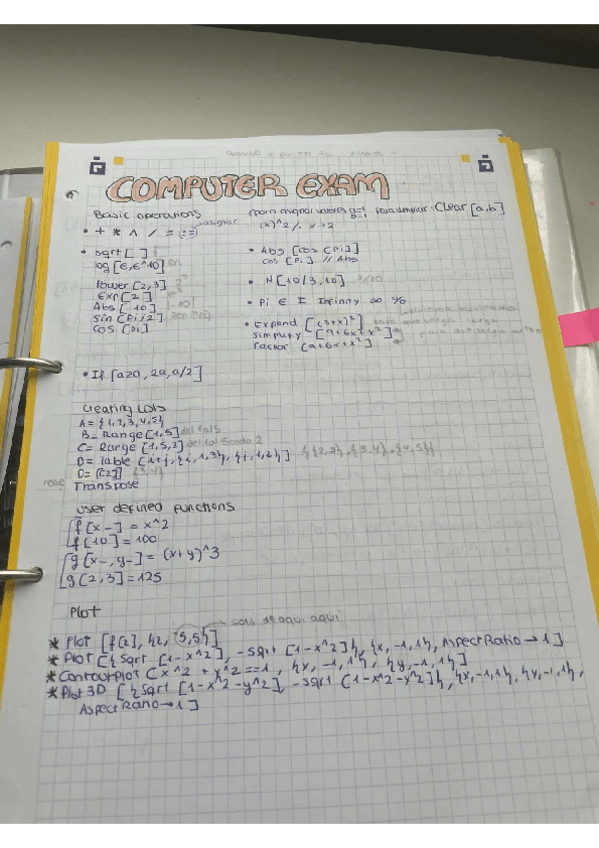 COMPUTER EXAM
Basic operations
para asignar valores a=1 para limpiar: Clear [a,b]
• + * ^ / = (:=) asignar
(x)^2 /. x→2
• sqrt [ ]
log [e, e^10]
Power [2,3]
Exp [2]
Abs [-10] |-10|
Sin [Pi/2]
cos [Pi]
• Abs [cos [Pi]]
cos [Pi] // Abs
• N [10/3, 10]
• Pi E I Infinity ∞ %
• Expand [(3+x)^2]
Simplify [9+6x+x^2]
Factor [9+6x+x^2]
• If [a≥0, 2a, a/2]
Creating lists
A = {1,2,3,4,5}
B = Range [1,5] del 1 al 5
C = Range [1,5,2] del 1 al 5 cada 2
D = Table [i+j, {i,1,3}, {j,1,2}] {{2,3},{3,4},{4,5}}
D = [[2]] {3,4}
Transpose
User defined functions
f [x-] = x^2
f [10] = 100
g [x-, y-] = (x+y)^3
g [2,3] = 125
Plot
solo de aqui aqui
* Plot [f[z], {z, -5,5}]
* Plot [{sqrt [1-x^2], -sqrt [1-x^2]}, {x,-1,1}, AspectRatio→1]
* ContourPlot [x^2 + y^2 ==1, {x,-1,1}, {y,-1,1}]
* Plot 3D [{sqrt [1-x^2-y^2], -sqrt [1-x^2-y^2]}, {x,-1,1}, {y,-1,1},
AspectRatio→1]